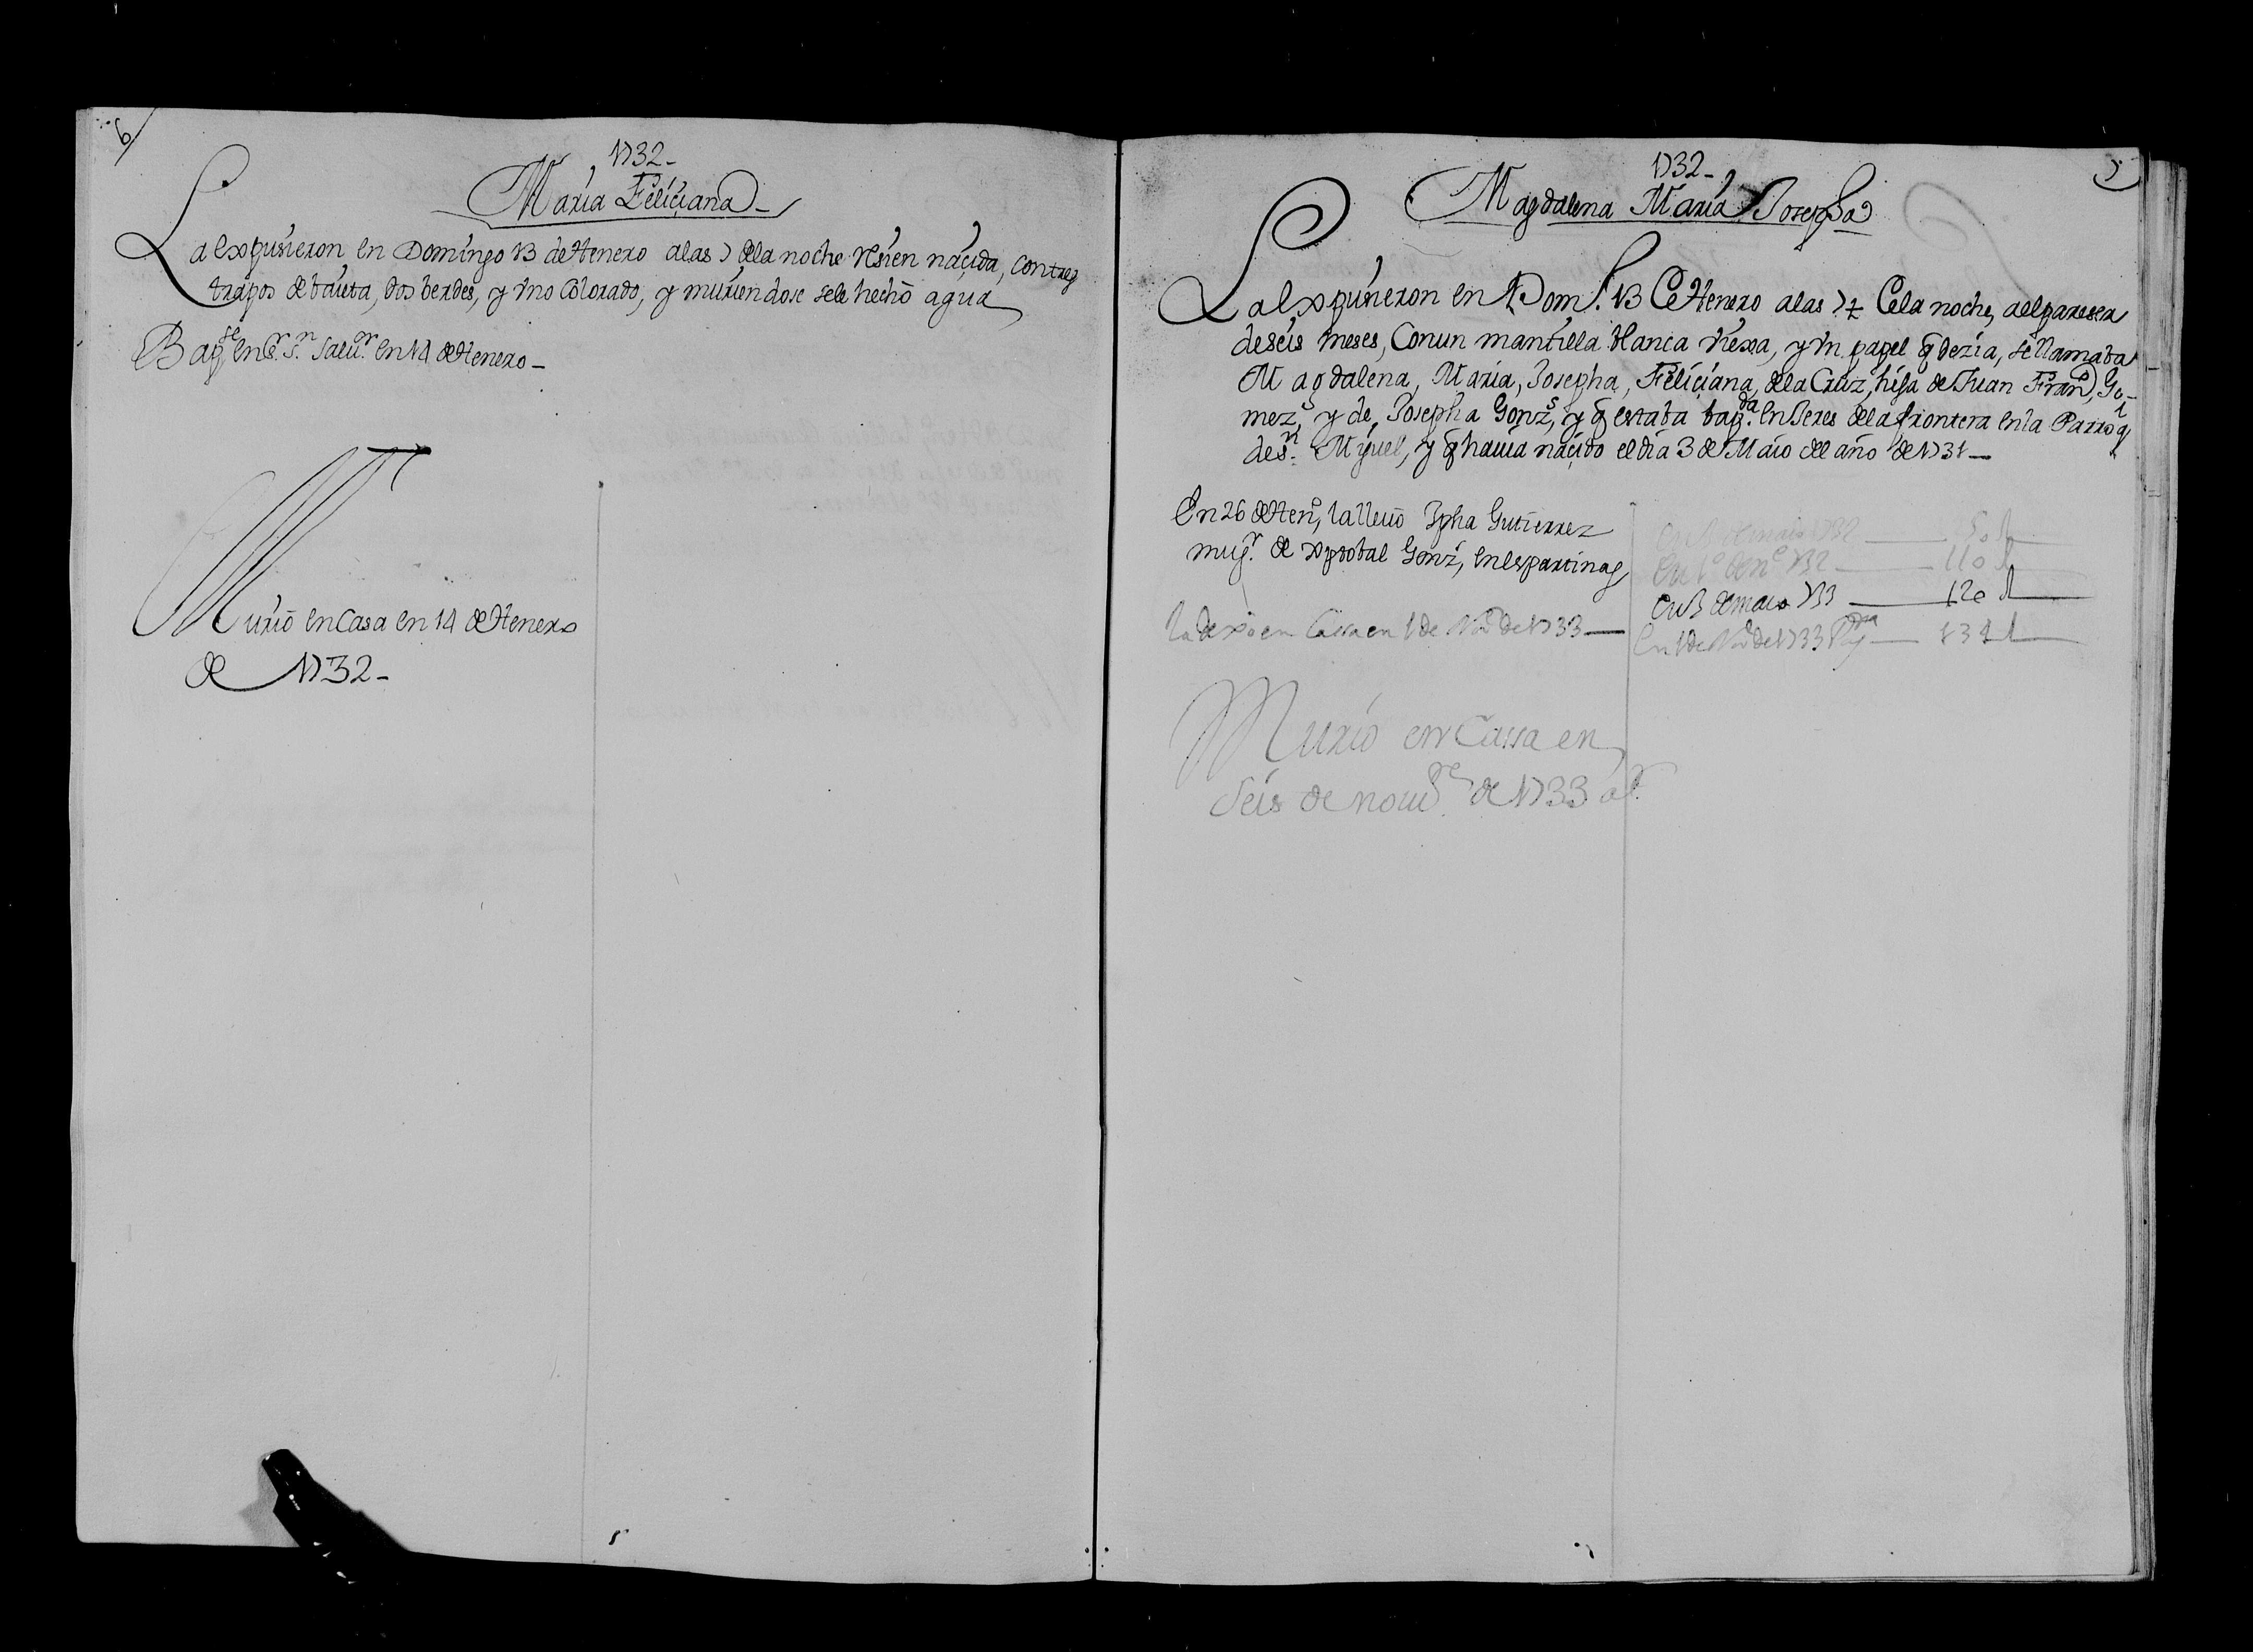 6
1732-
Maria Feliçiana-
La expusieron en Domingo 13 de Henero a las 7 de la noche resien naçida, con tres
trapos de baieta, dos berdes, y Vno Colorado, y muriendose se le hechó agua
Bapse en Sr. Sn Salur. en 14 de Henero-
Murió en Casa en 14 de Henero
de 1732-
1732-
7
Magdalena Maria Josepha
La expusieron en Domo. 13 de Henero a las 7½ de la noche, a el pareser
de seis meses, Con un mantilla blanca viexa, y Vn papel q̄ dezia, se llamaba
Magdalena, Maria, Josepha, Feliçiana, de la Cruz, hija de Juan Frano, Go-
mez, y de, Josepha Gonzs, y q̄ estaba bapda. en Xeres de la frontera en la Parroql
de Sn. Miguel, y q̄ havia naçido el dia 3 de Maio del año de 1731-
En 26 de Heno, la llevó Jpha Gutierrez
mugr. de Xptobal Gonz, en Espartinas
la dexó en Cassa en 1 de Noe de 1733-
En 3 de maio 732 — 50 r
En 1º de noe 732 — 110 r
En 3 de maio 733 — 120 r
En 1 de Noe de 1733 — 131 r
Murió en Cassa en
Seis de noure. de 1733 as.